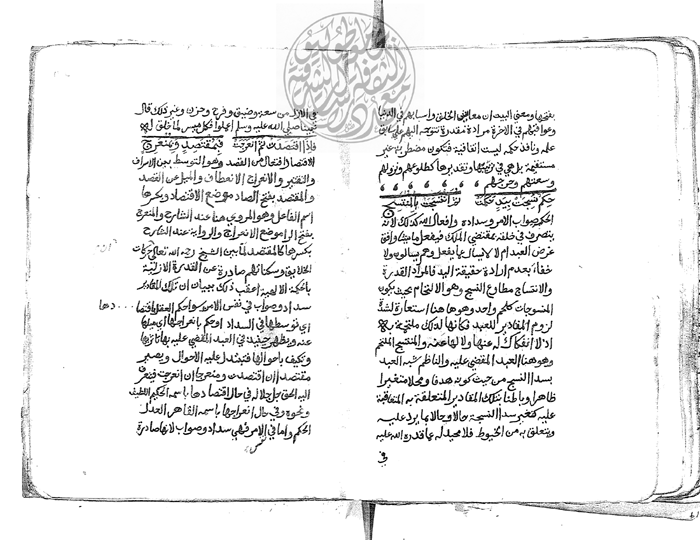 بعضها ومعنى البيت ان معايش الخلق واسبابهم في الدنيا
وعواقبهم في الاخرة مرادة مقدرة تتوجه اليهم على سابق
علمه ونافذ حكمه ليست اتفاقية فتكون مضطربة غير
مستقيمة بل هي في ترتيبها وتقديرها كطلوعهم ونزولهم
وسعتهم وحرجهم
حكم نسجت بيد حكمت ثم انتسجت بالمنتسج
الحكم صواب الامر وسداده وافعال الله كذلك لأنه
يتصرف في خلقه بمقتضى الملك فيفعل ما يشاء وافق
غرض العبد ام لا لا يسال عما يفعل وهم يسالون ولا
خفاء بعدم ارادة حقيقة اليد فالمراد القدرة
والانتساج مطاوع النسج وهو الالتحام بحيث يكون
المنسوجات كلحم واحد وهو هنا استعارة لشدة
لزوم المقادير للعبد فكانها لذلك ملتحمة بهم
اذ لا انفكاك له عنها ولا لها عنه والمنتسج الملتحم
وهو هنا العبد المقضي عليه والناظم شبه العبد
بسدا النسج من حيث كونه هدفا ومحلا متغيرا
ظاهرا وباطنا بتلك المقادير المتعلقة به المتعاقبة
عليه كتغير سدا النسيجة حالا وحالا بما يرد عليه
ويتعلق به من الخيوط فلا محيد له عما قدره الله عليه
في
في الازل من سعة وضيق وفرح وحزن وغير ذلك قال
نبينا صلى الله عليه وسلم اعملوا فكل ميسر لما خلق له
فاذا اقتصدت ثم انعرجت فبمقتصد وبمنعرج
الاقتصاد افتعال من القصد وهو التوسط بين الاسراف
والتقتير والانعراج الانعطاف والميل عن القصد
والمقتصد بفتح الصاد موضع الاقتصاد وبكسرها
اسم الفاعل وهو المروي هنا عند الشارح والمنعرج
بفتح الرا موضع الانعراج والرواية عند الشارح
بكسرها كالمقتصد لما بين الشيخ رحمه الله تعالى حركات
الخلايق وسكناتهم صادرة عن القدرة الازلية
بالحكمة الالهية اعقب ذلك ببيان ان تلك المقادير
سداد وصواب في نفس الامر سوا حكم العقل باقتصادها
اي توسطها في السداد او حكم بانعراجها اي ميلها
عنه ويظهر حينئذ في العبد المقضي عليه بها تاثيرها
وتكيف باحوالها فتبدل عليه الاحوال ويصير
مقتصدا ان اقتصدت ومنعرجا ان انعرجت فيتعرف
اليه الحق جل جلاله في حال اقتصادها باسمه الحكيم اللطيف
ونحوه وفي حال انعراجها باسمه القاهر العدل
الحكم واما في الامر فهي سداد وصواب لانها صادرة